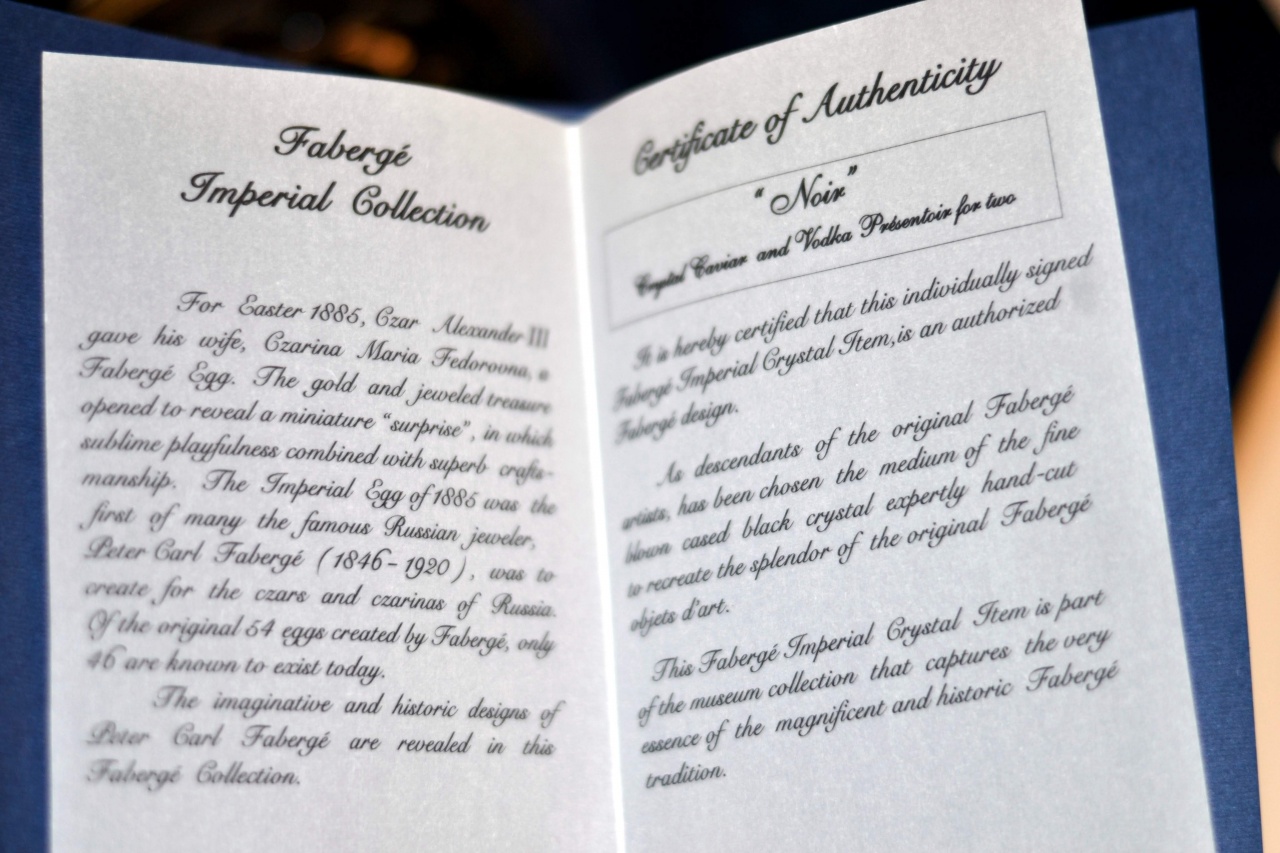 Fabergé
Imperial Collection
For Easter 1885, Czar Alexander III
gave his wife, Czarina Maria Fedorovna, a
Fabergé Egg. The gold and jeweled treasure
opened to reveal a miniature “surprise”, in which
sublime playfulness combined with superb crafts-
manship. The Imperial Egg of 1885 was the
first of many the famous Russian jeweler,
Peter Carl Fabergé (1846-1920), was to
create for the czars and czarinas of Russia.
Of the original 54 eggs created by Fabergé, only
46 are known to exist today.
The imaginative and historic designs of
Peter Carl Fabergé are revealed in this
Fabergé Collection.
Certificate of Authenticity
“Noir”
Crystal Caviar and Vodka Présentoir for two
It is hereby certified that this individually signed
Fabergé Imperial Crystal Item,is an authorized
Fabergé design.
As descendants of the original Fabergé
artists, has been chosen the medium of the fine
blown cased black crystal expertly hand-cut
to recreate the splendor of the original Fabergé
objets d'art.
This Fabergé Imperial Crystal Item is part
of the museum collection that captures the very
essence of the magnificent and historic Fabergé
tradition.